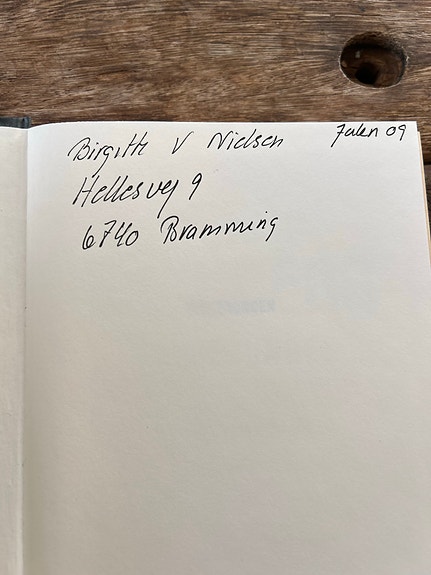 Birgitte V Nielsen Julen 09
Hellesvej 9
6740 Bramming